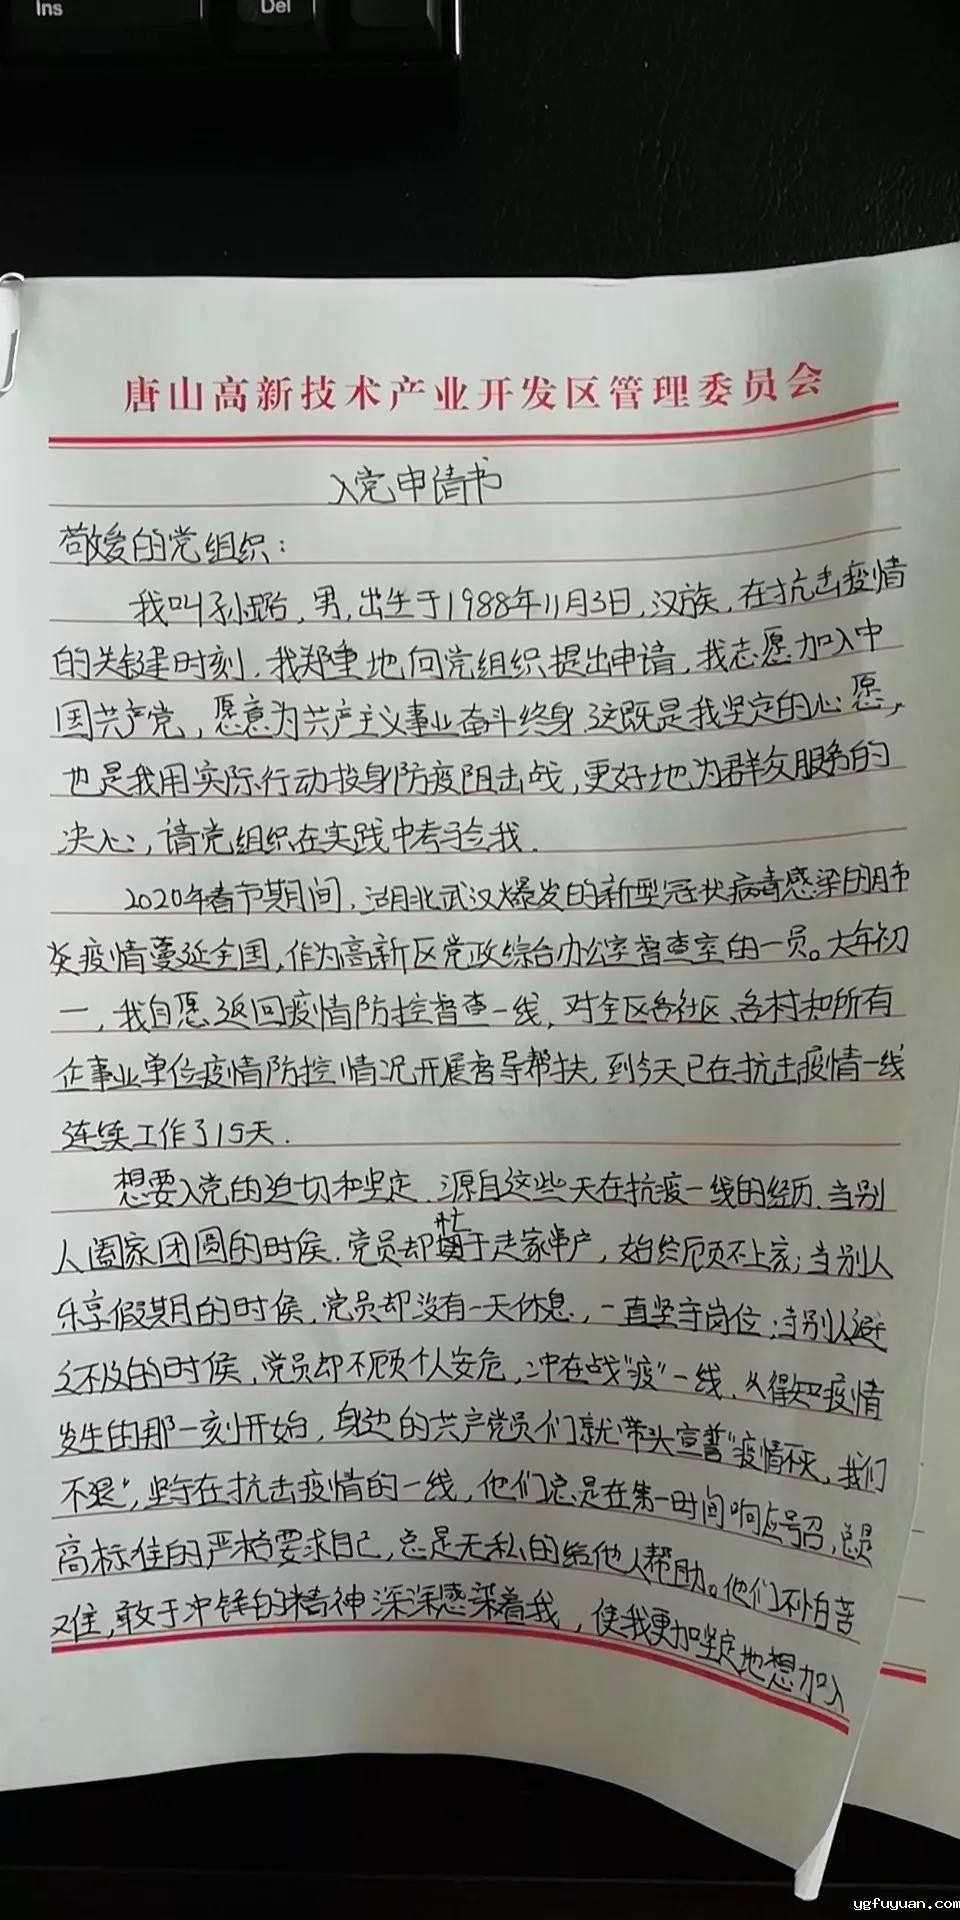 Ins
Del
唐山高新技术产业开发区管理委员会
入党申请书
敬爱的党组织：
我叫孙璐，男，出生于1988年11月3日，汉族，在抗击疫情
的关键时刻，我郑重地向党组织提出申请，我志愿加入中
国共产党，愿意为共产主义事业奋斗终身.这既是我坚定的心愿，
也是我用实际行动投身防疫阻击战，更好地为群众服务的
决心，请党组织在实践中考验我.
2020年春节期间，湖北武汉爆发的新型冠状病毒感染的肺
炎疫情蔓延全国，作为高新区党政综合办公室督查室的一员。大年初
一，我自愿返回疫情防控督查一线，对全区各社区、各村和所有
企事业单位疫情防控情况开展督导帮扶，到今天已在抗击疫情一线
连续工作了15天.
想要入党的迫切和坚定，源自这些天在抗疫一线的经历.当别
人阖家团圆的时候，党员却忙于走家串户，始终顾不上家；当别人
乐享假期的时候，党员却没有一天休息，一直坚守岗位；当别人避
之不及的时候，党员却不顾个人安危，冲在战"疫"一线.从得知疫情
发生的那一刻开始，身边的共产党员们就带头宣誓"疫情不灭，我们
不退"，坚守在抗击疫情的一线，他们总是在第一时间响应号召，总是
高标准的严格要求自己，总是无私的给他人帮助。他们不怕苦
难，敢于冲锋的精神深深感染着我，使我更加坚定地想加入
ygfuyuan.com